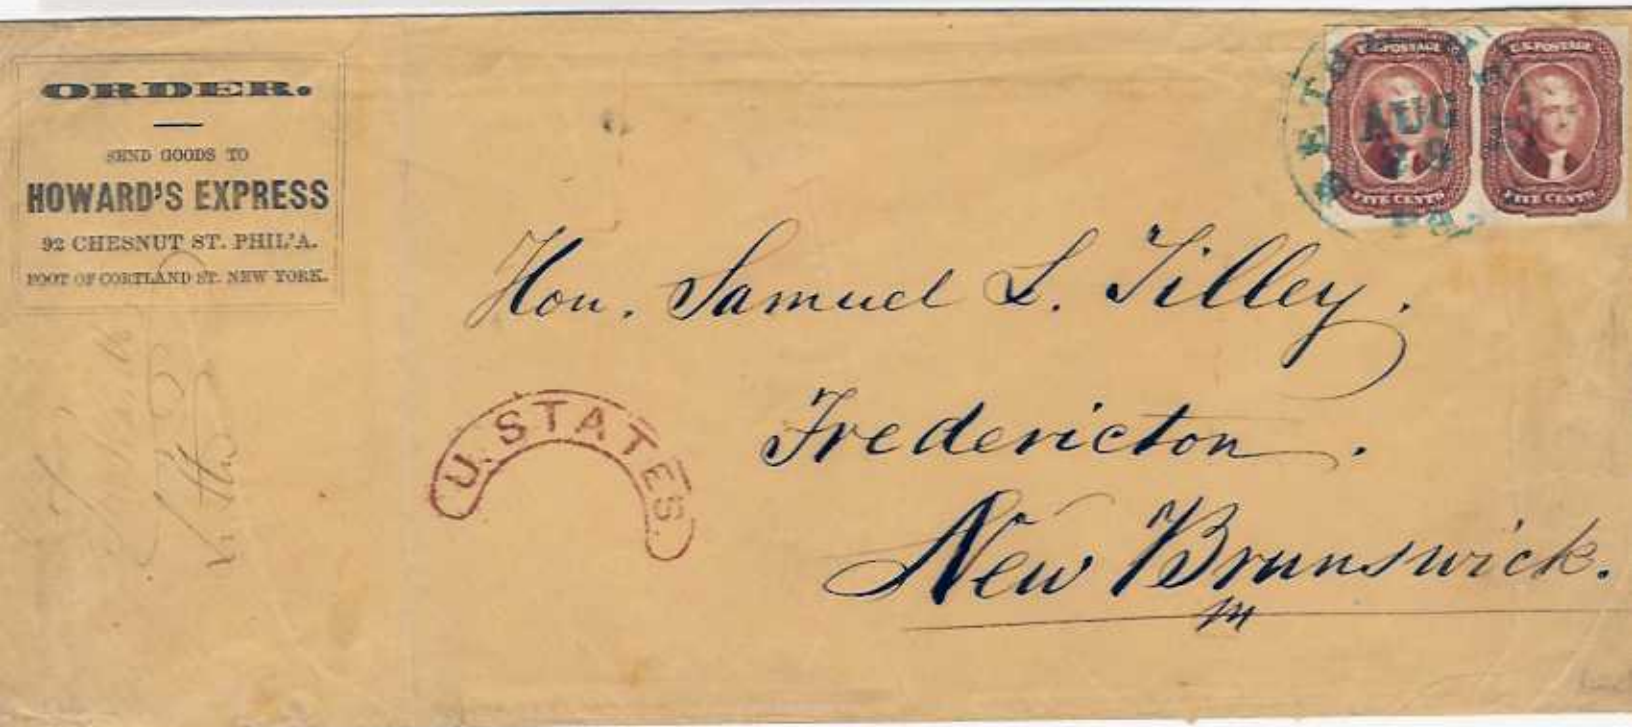 ORDER.
SEND GOODS TO
HOWARD'S EXPRESS
92 CHESNUT ST. PHIL'A.
FOOT OF CORTLAND ST. NEW YORK.
U.S. POSTAGE
FIVE CENTS
U.S. POSTAGE
FIVE CENTS
AUG
29
Hon. Samuel L. Tilley.
Fredericton.
New Brunswick.
U. STATES.